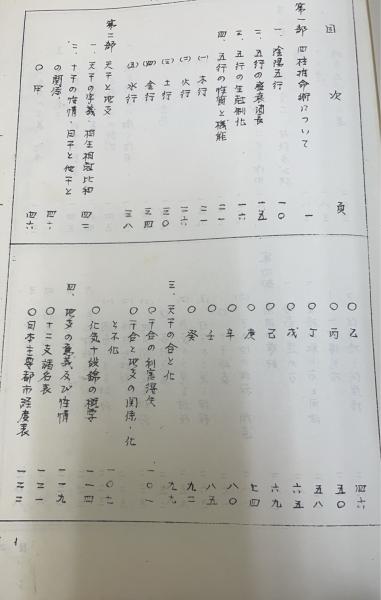 目次 頁
第一部 四柱推命術について 一
一、陰陽五行 一〇
二、五行の盛衰消長 一五
三、五行の生剋制化 一六
四、五行の性質と機能 二一
(一) 木行 二一
(二) 火行 二六
(三) 土行 三〇
(四) 金行 三四
(五) 水行 三八
第二部 天干と地支
一、天干の字義・相生相剋比和 四二
二、十干の性情・日干と他干と
の関係 四六
〇甲 四六
〇乙 四六
〇丙 五〇
〇丁 五八
〇戊 六五
〇己 六九
〇庚 七四
〇辛 八〇
〇壬 八五
〇癸 九二
三、天干の合と化 九九
〇干合の利害得失 一〇一
〇干合と地支の関係・化
と不化 一〇七
〇化気十段錦の概学 一一四
四、地支の意義及び性情 一一九
〇十二支諸名表 一二一
〇日本主要都市経度表 一二二
1